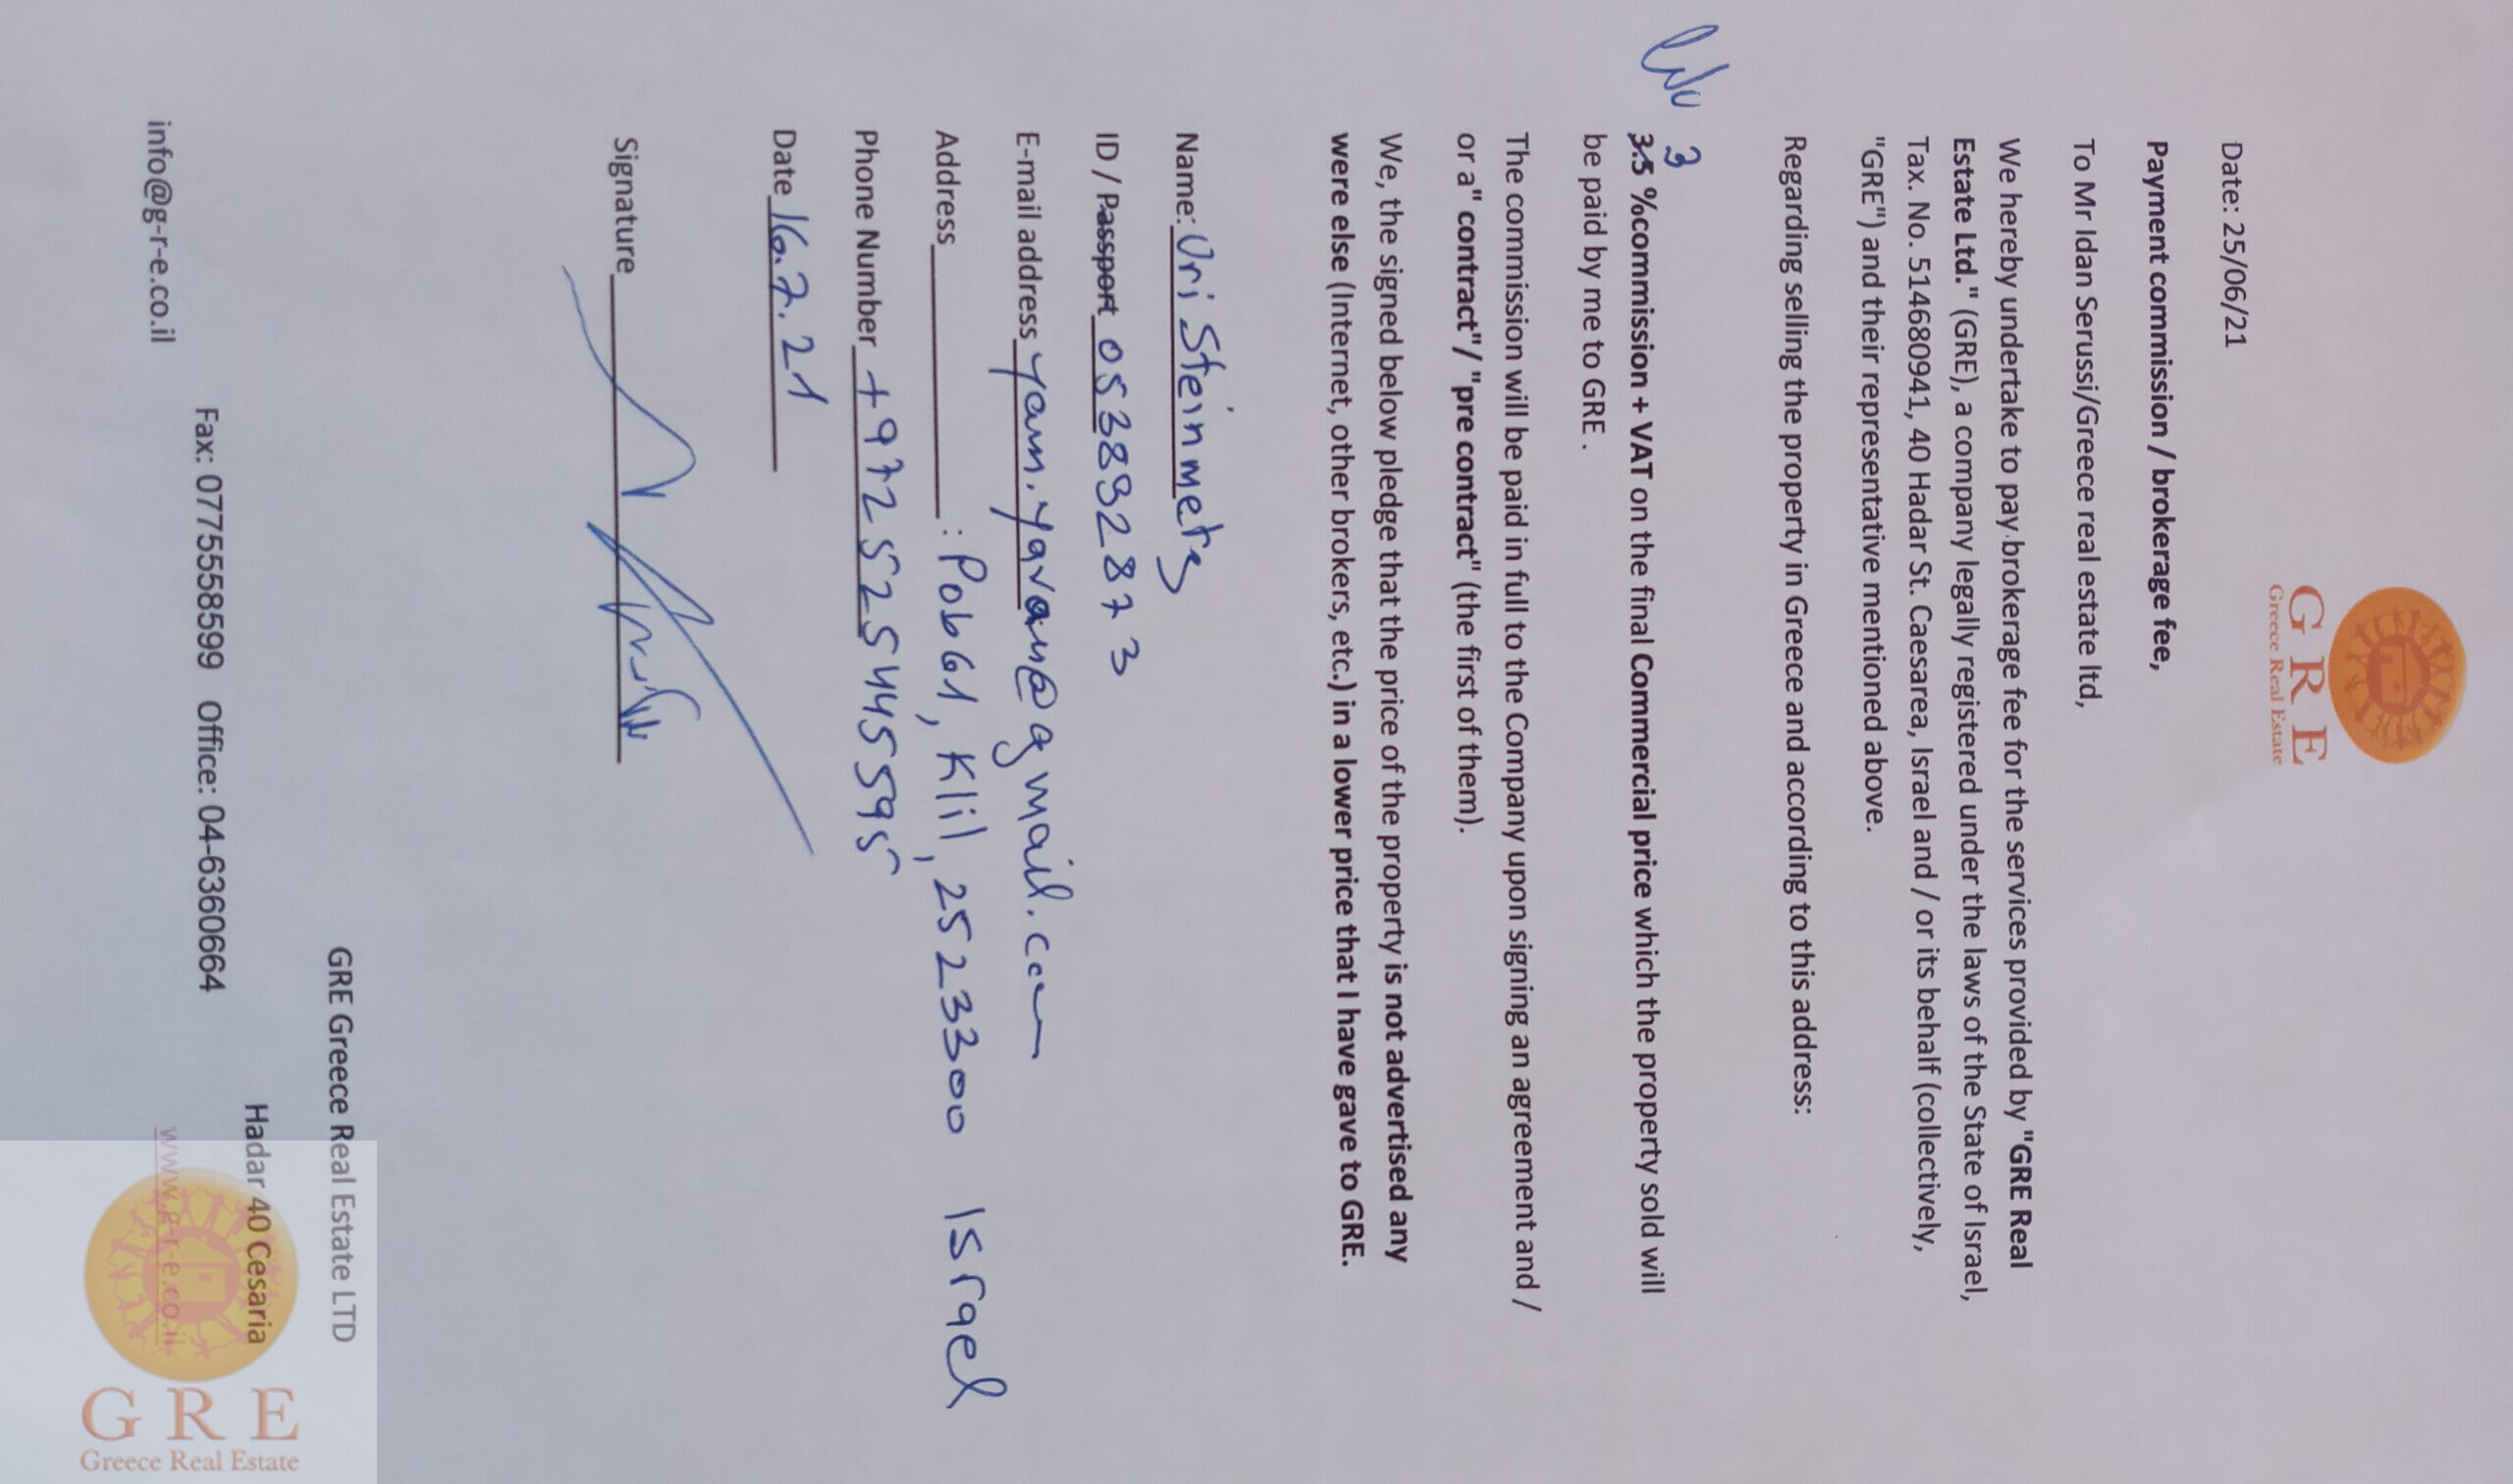 G R E
Greece Real Estate
Date: 25/06/21
Payment commission / brokerage fee,
To Mr Idan Serussi/Greece real estate ltd,
We hereby undertake to pay brokerage fee for the services provided by "GRE Real
Estate Ltd." (GRE), a company legally registered under the laws of the State of Israel,
Tax. No. 514680941, 40 Hadar St. Caesarea, Israel and / or its behalf (collectively,
"GRE") and their representative mentioned above.
Regarding selling the property in Greece and according to this address:
3
3.5 %commission + VAT on the final Commercial price which the property sold will
be paid by me to GRE .
The commission will be paid in full to the Company upon signing an agreement and /
or a" contract"/ "pre contract" (the first of them).
We, the signed below pledge that the price of the property is not advertised any
were else (Internet, other brokers, etc.) in a lower price that I have gave to GRE.
Name: Uri Steinmetz
ID / Passport 053892873
E-mail address yam.yavan@gmail.com
Address : Pob 61, Klil, 2523300 Israel
Phone Number +972525445595
Date 16.7.21
Signature
GRE Greece Real Estate LTD
Hadar 40 Cesaria
Fax: 0775558599 Office: 04-6360664
info@g-r-e.co.il www.g-r-e.co.il
G R E
Greece Real Estate